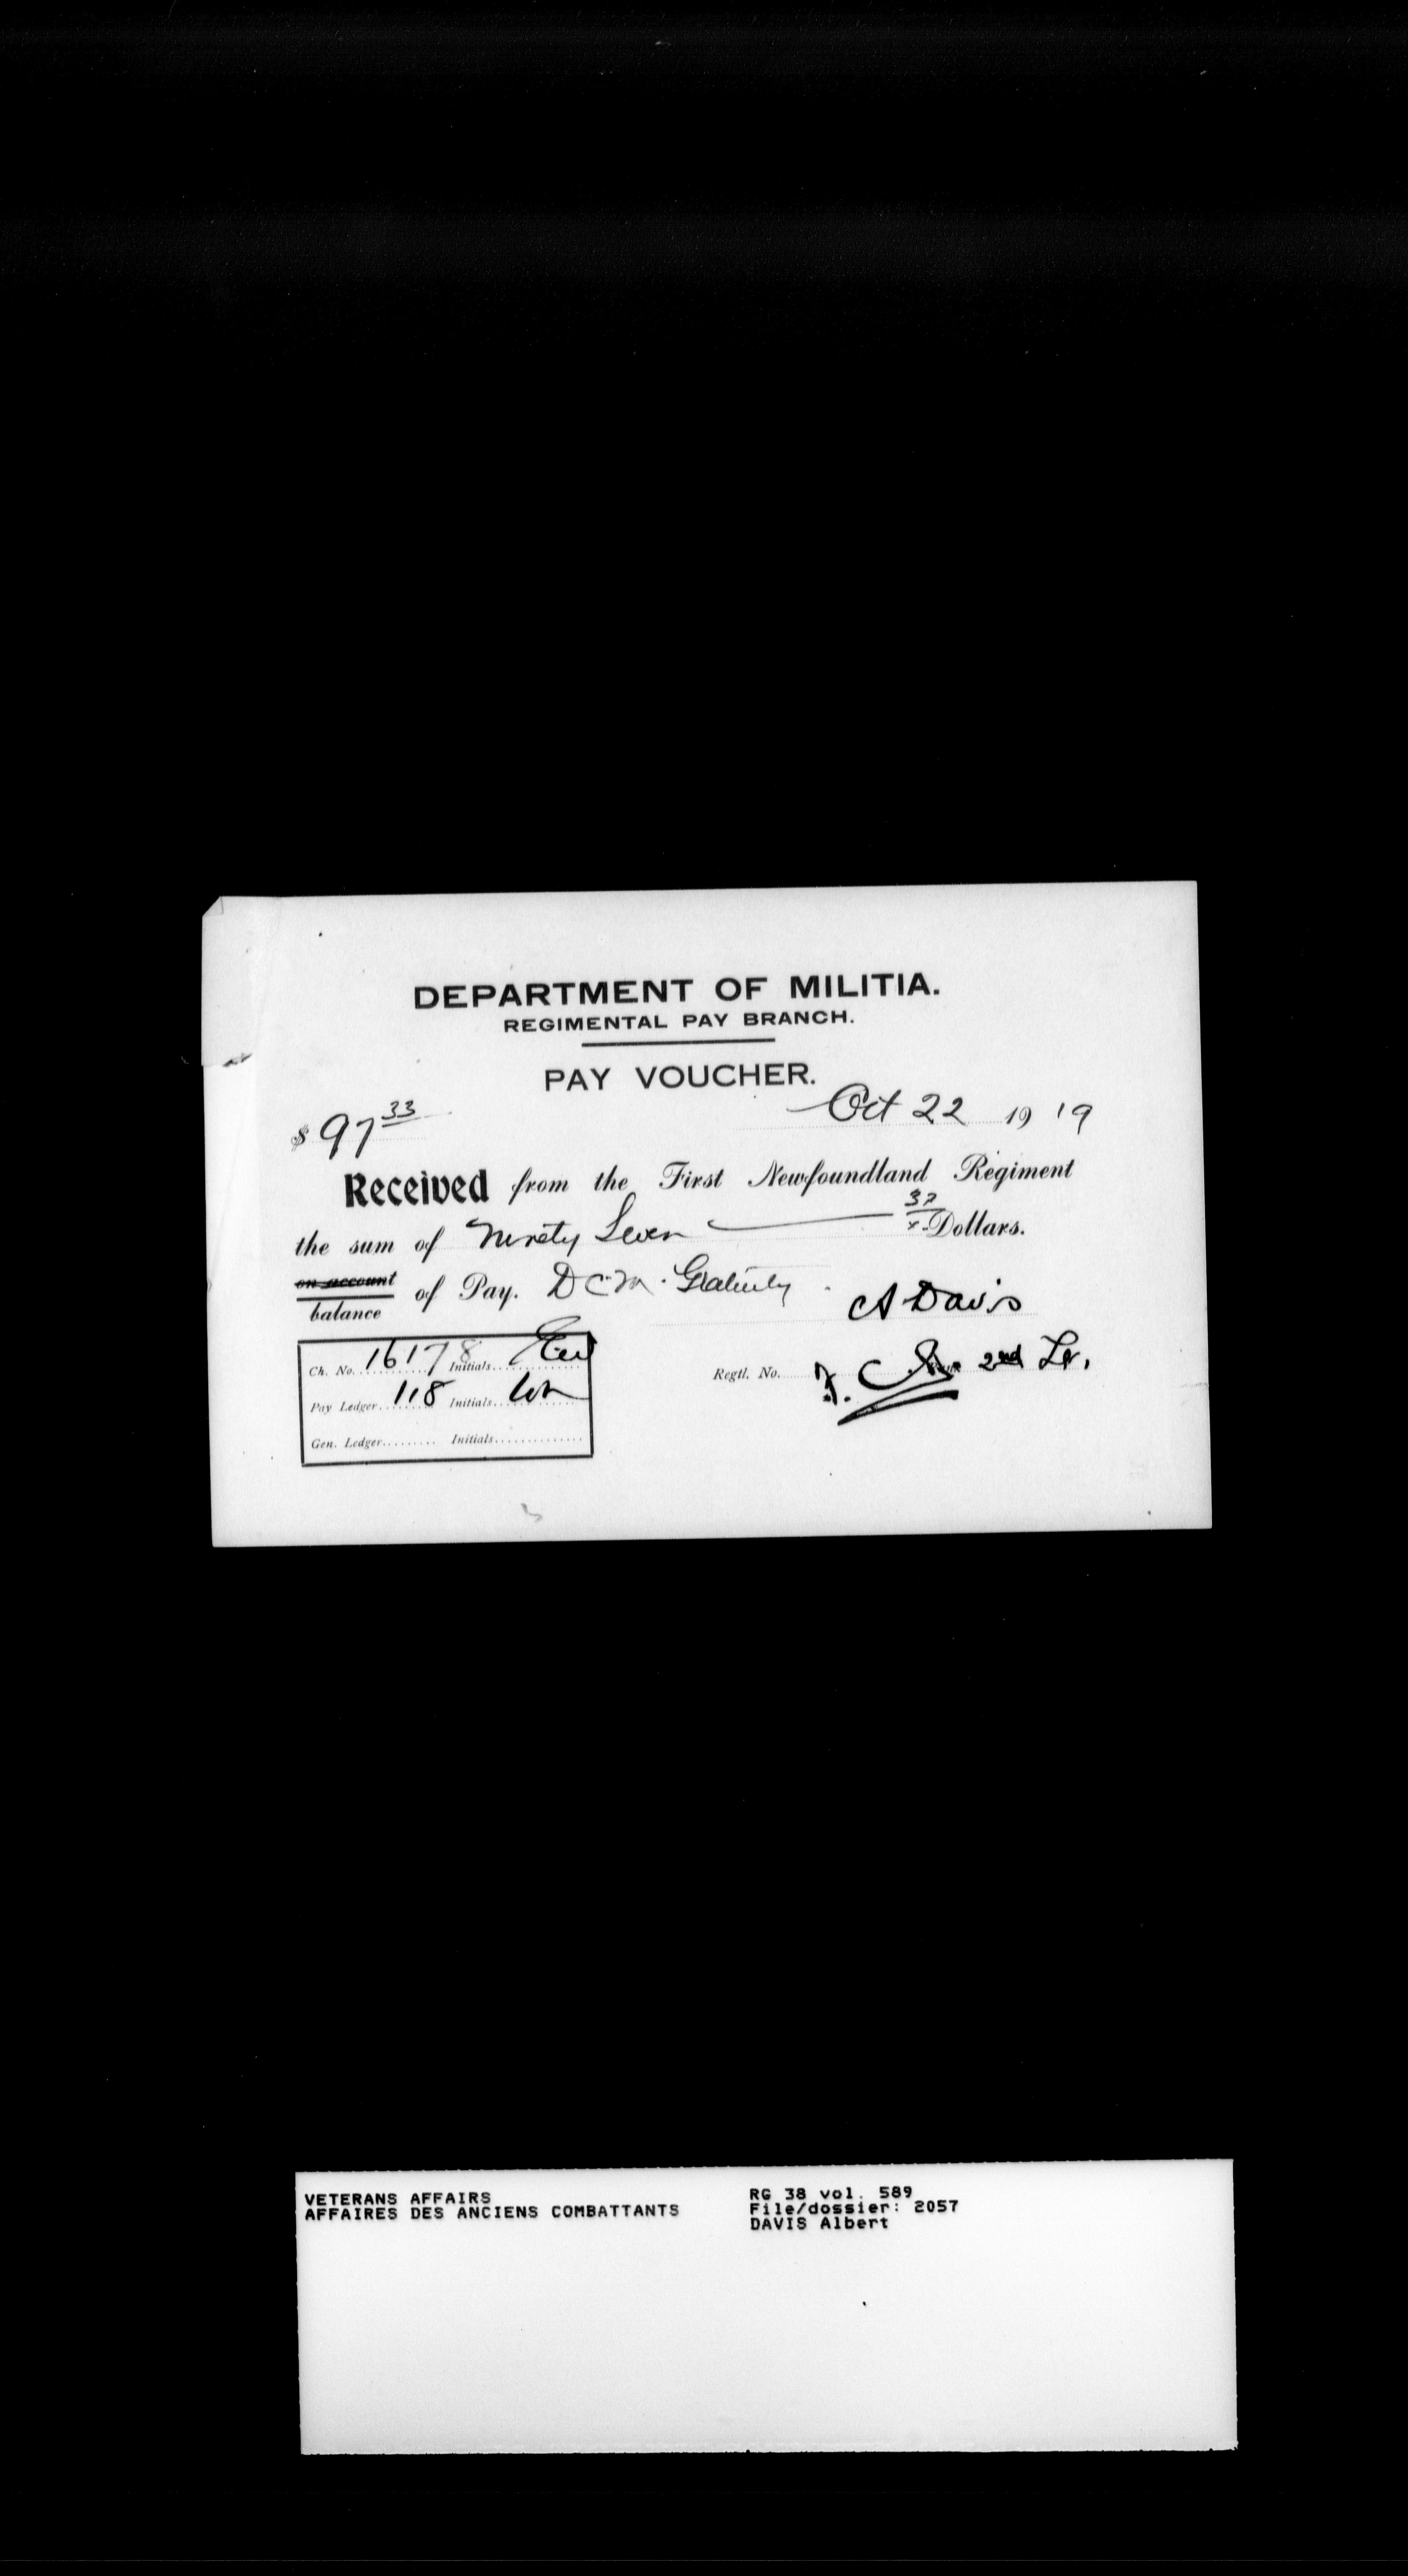 DEPARTMENT OF MILITIA.
REGIMENTAL PAY BRANCH.
PAY VOUCHER.
Oct 22 19 19
$ 97 33
Received from the First Newfoundland Regiment
the sum of Ninety Seven 33 Dollars.
on account
balance of Pay. D C M. Gratuity
A Davis
Ch. No. 16178 Initials
Regtl. No. 2nd Lt.
Pay Ledger 118 Initials
Gen. Ledger Initials
VETERANS AFFAIRS RG 38 vol. 589
AFFAIRES DES ANCIENS COMBATTANTS File/dossier: 2057
DAVIS Albert